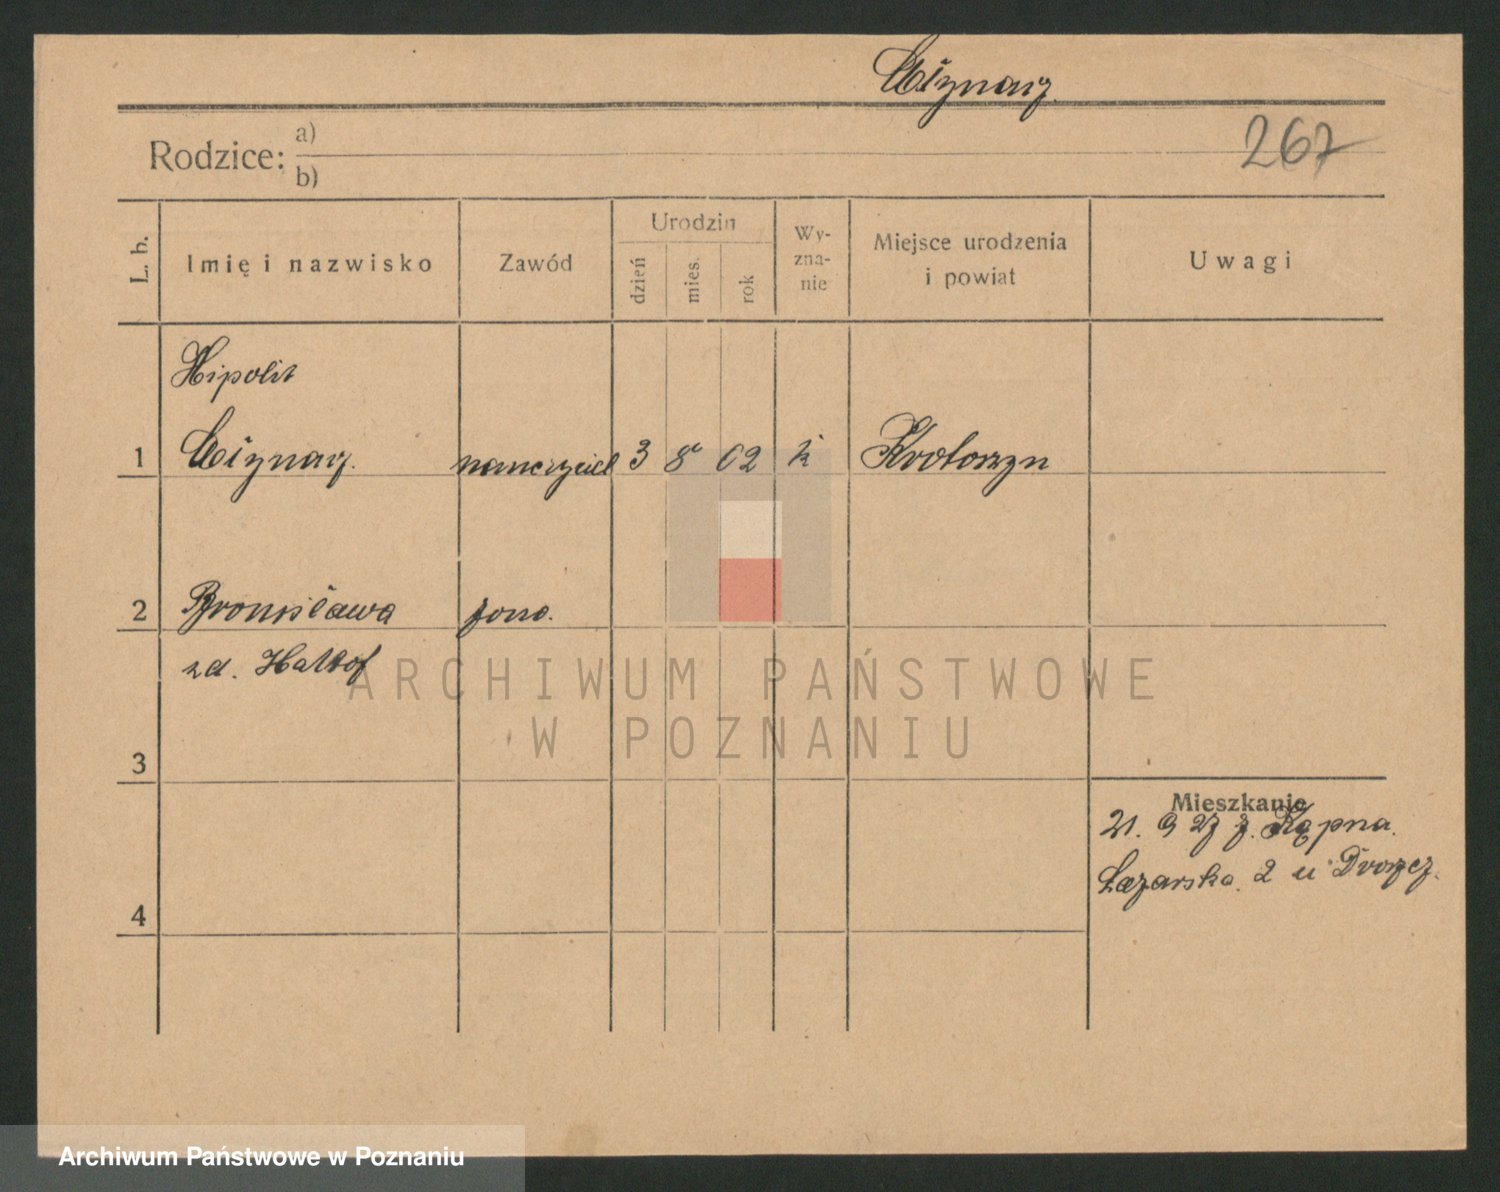 267
Rodzice: a)
b)
L. b.
Imię i nazwisko
Zawód
Urodzin
dzień
mies.
rok
Wy-
zna-
nie
Miejsce urodzenia
i powiat
Uwagi
Hipolit
1 nauczyciel 3 8 02 k Krotoszyn
2 Bronisława żona.
zd.
3
4
Mieszkanie
21. 9 27 z Kępna.
Łazarska. 2 u
ARCHIWUM PAŃSTWOWE
W POZNANIU
Archiwum Państwowe w Poznaniu